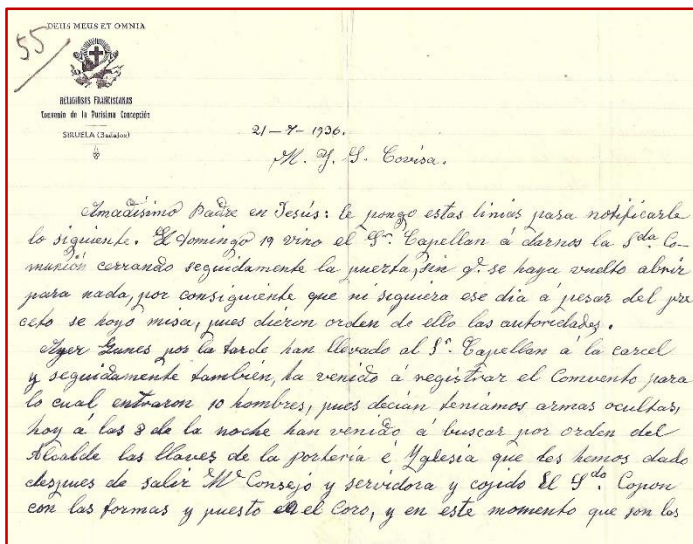 DEUS MEUS ET OMNIA
55
RELIGIOSAS FRANCISCANAS
Convento de la Purísima Concepción
SIRUELA (Badajoz)
21-7-1936.
M. Y. S. Covisa.
Amadísimo Padre en Jesús: le pongo estas linias para notificarle
lo siguiente. El Domingo 19 vino el Sr. Capellan á darnos la Sda Co-
munión cerrando seguidamente la puerta, sin q. se haya vuelto abrir
para nada, por consiguiente que ni siquiera ese dia á pesar del pre
ceto se hoyo misa, pues dieron orden de ello las autoridades.
Ayer Lunes por la tarde han llevado al Sr. Capellan á la carcel
y seguidamente tambien, ha venido á registrar el Comvento para
lo cual entraron 10 hombres, pues decían teniamos armas ocultas,
hoy á las 8 de la noche han venido á buscar por orden del
Alcalde las llaves de la porteria é Yglesia que les hemos dado
despues de salir Me Consejo y servidora y cojido El Sdo Copon
con las formas y puesto en el Coro, y en este momento que son las